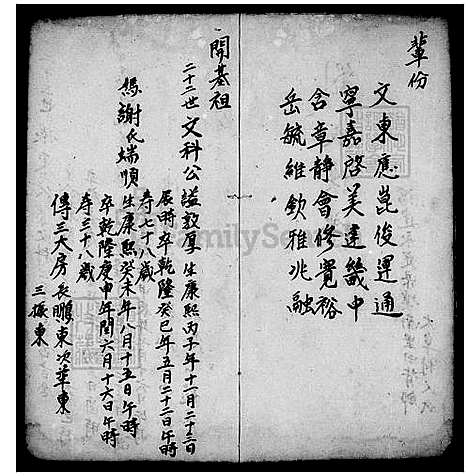 輩份
文東應崑俊運通
寧嘉啓美達畿中
含章靜會修寬裕
岳毓維欽雅兆融
開基祖
二十二世文科公諡敦厚生康熙丙子年十一月二十三日
辰時卒乾隆癸巳年五月二十二日午時
寿七十八歲
媽謝氏端順生康熙癸未年八月十五日午時
卒乾隆庚申年閏六月十六日午時
寿三十八歲
傳三大房長鵬東次華東
三振東
FamilySearch